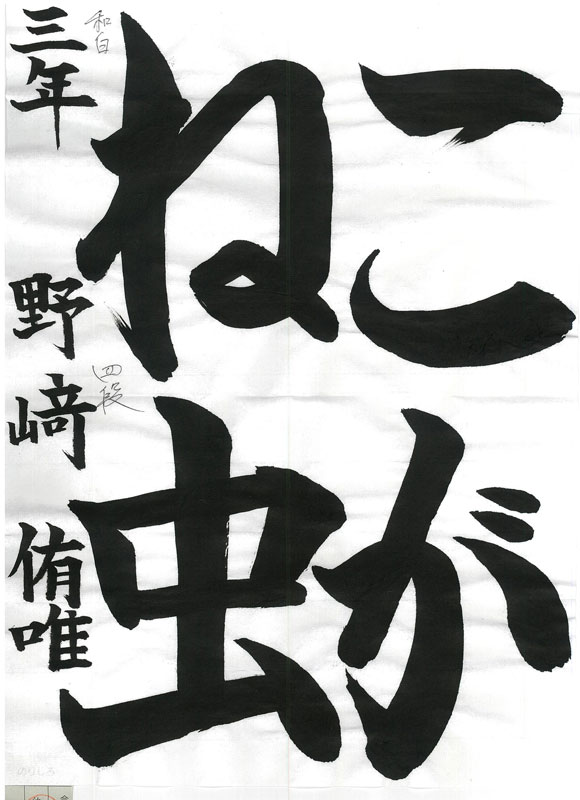 こが
ね虫
三年 野﨑 侑唯
和白
四段
のりしろ